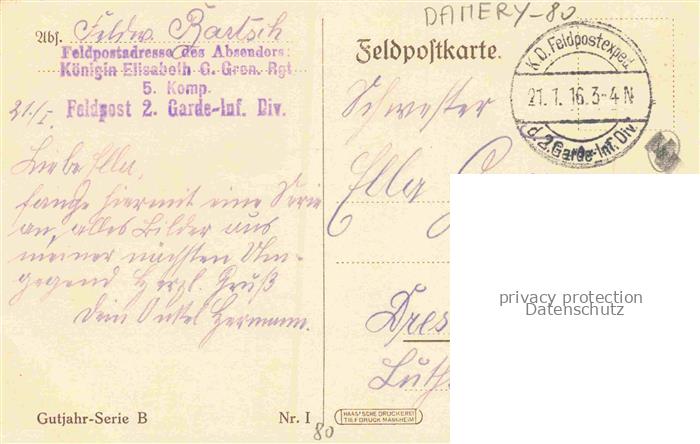 DAMERY-80
Abs. Feldw. Bartsch
Feldpostadresse des Absenders:
Königin Elisabeth G. Gren. Rgt
5. Komp.
21./I. Feldpost 2. Garde-Inf. Div.
Feldpostkarte.
K.D. Feldpostexped.
21.1.16. 3-4 N
d. 2. Garde-Inf. Div.
Schwester
Ella
Liebe Ella,
fange hiermit eine Serie
an, alles Bilder aus
meiner nächsten Um-
gegend Herzl. Gruß
Dein Onkel Hermann.
Dres
Luth
privacy protection
Datenschutz
Gutjahr-Serie B
Nr. I
80
HAAS'SCHE DRUCKEREI
TIEFDRUCK MANNHEIM